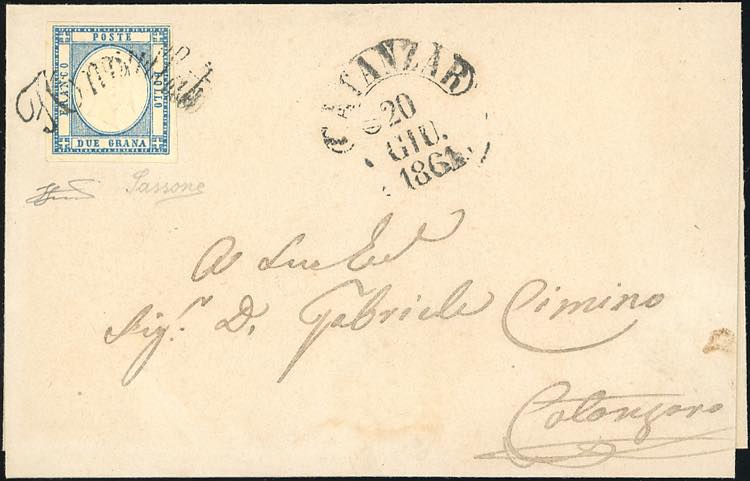 POSTE
FRANCO
BOLLO
DUE GRANA
CATANZAR
20
GIU.
1861
Sassone
A Sua Ecl
Sig.r D. Gabriele Cimino
Catanzaro